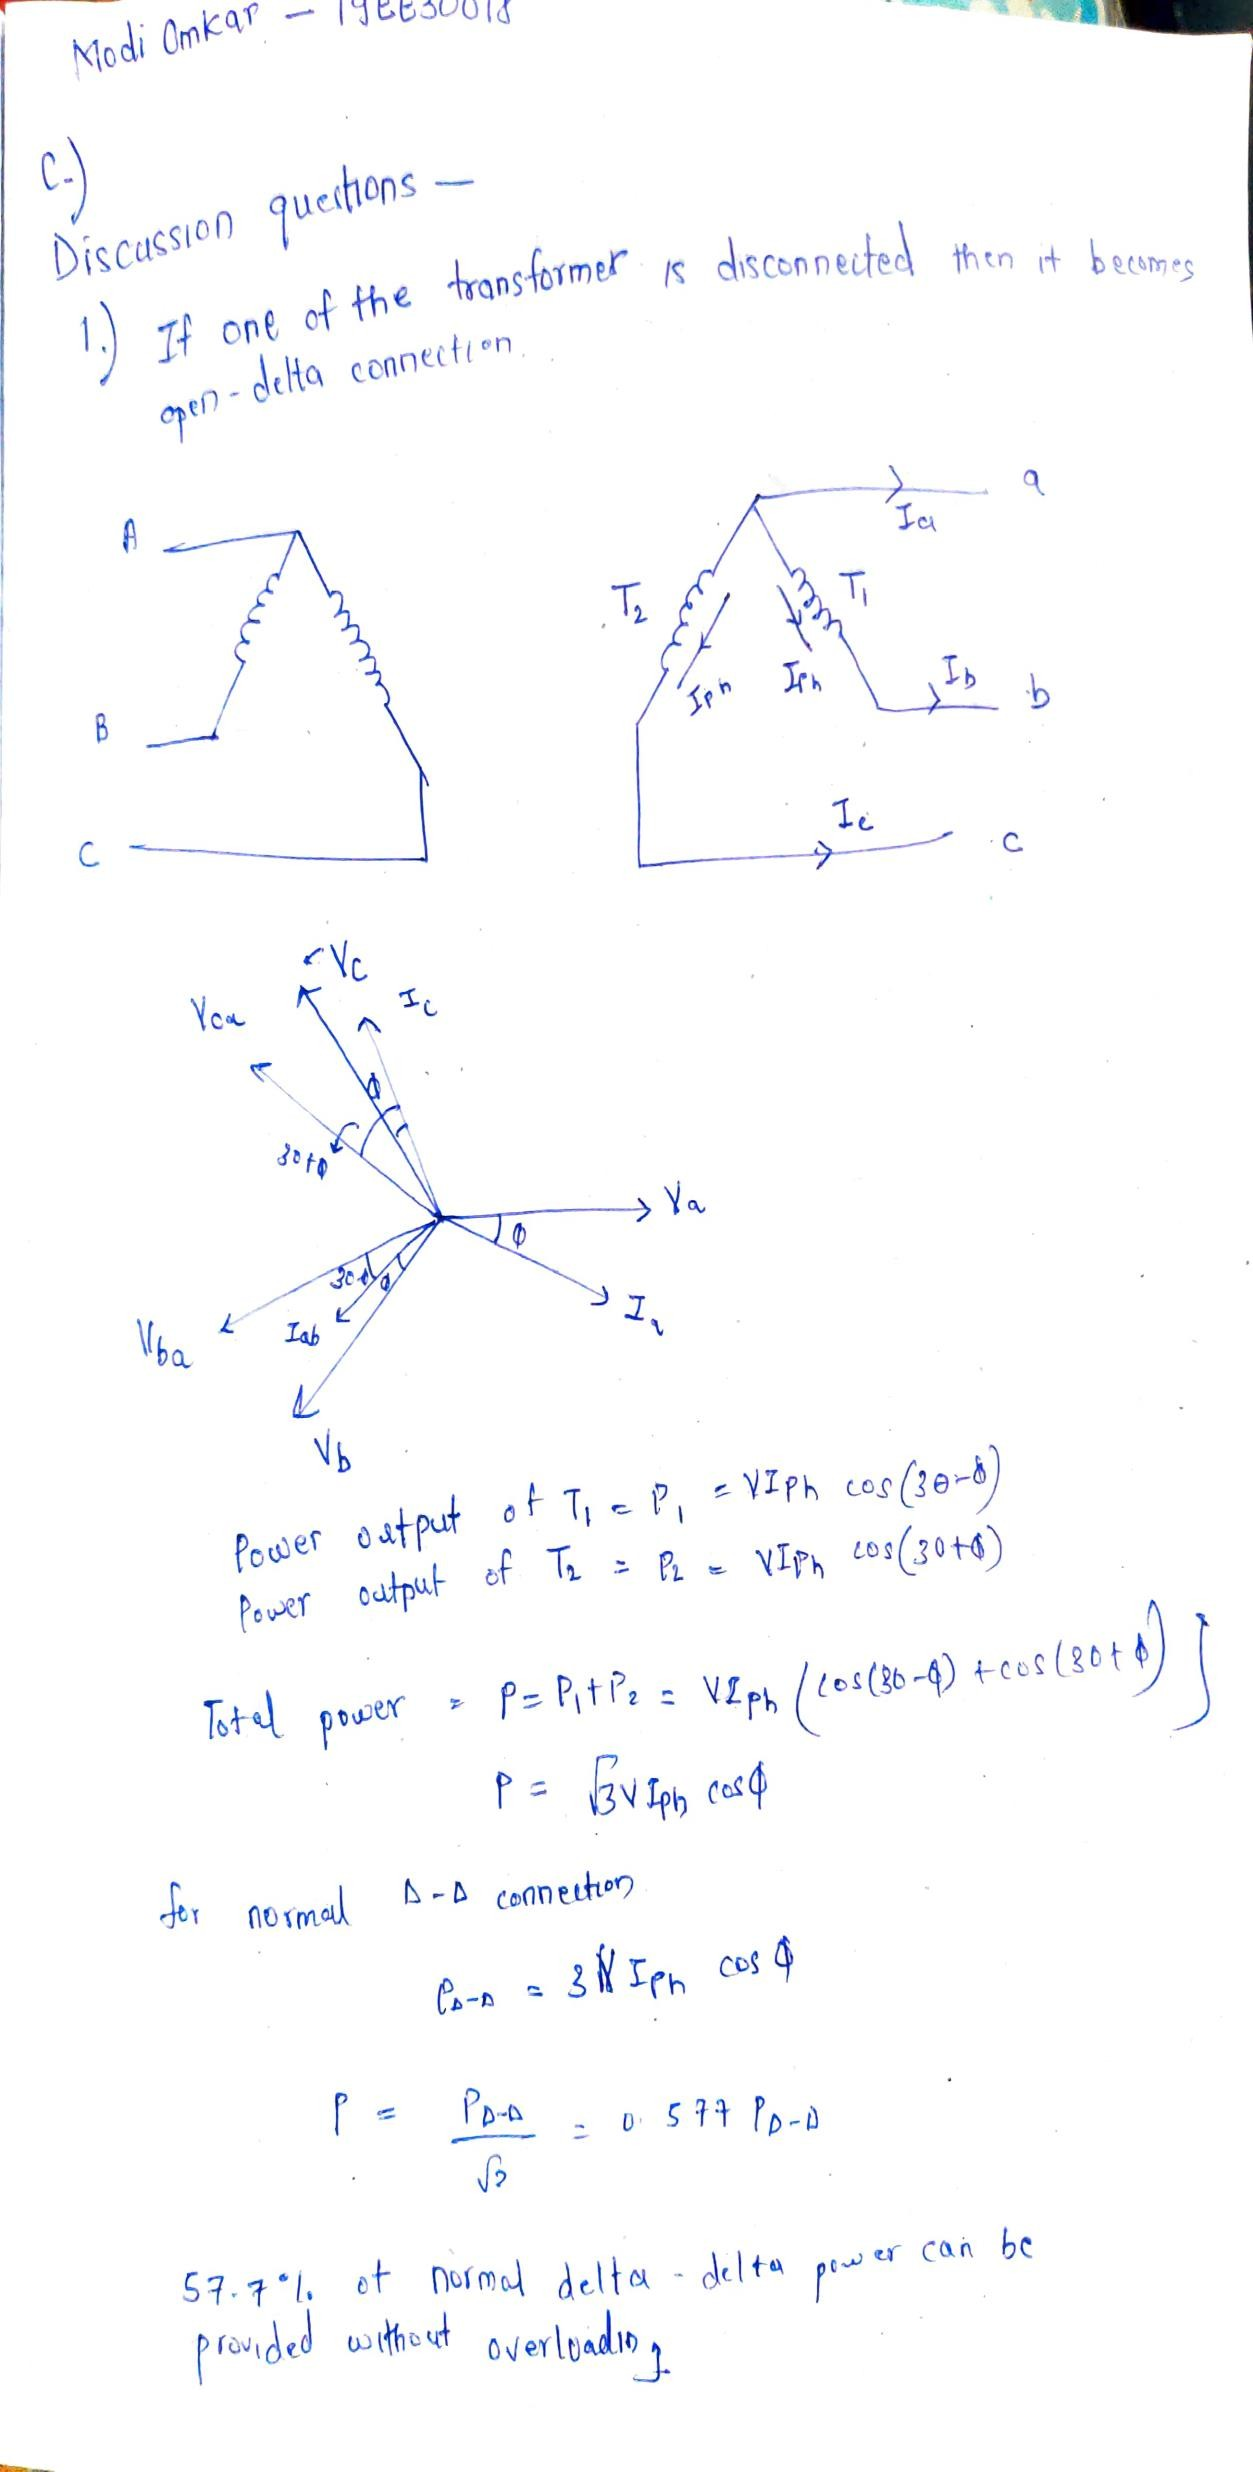 Modi Omkar - 19EE30018
C.)
Discussion questions -
1.) If one of the transformer is disconnected then it becomes
open-delta connection.
A
B
C
a
Ia
T2
T1
Iph
Iph
Ib
b
Ic
c
Vc
Ic
Vca
ϕ
30+ϕ
Va
ϕ
Ia
30-ϕ
ϕ
Vba
Iab
Vb
Power output of T1 = P1 = VIph cos(30-ϕ)
Power output of T2 = P2 = VIph cos(30+ϕ)
Total power = P = P1+P2 = VIph (cos(30-ϕ) + cos(30+ϕ)]
P = √3VIph cosϕ
for normal Δ-Δ connection
PΔ-Δ = 3VIph cosϕ
P = PΔ-Δ/√3 = 0.577 PΔ-Δ
57.7% of normal delta-delta power can be
provided without overloading